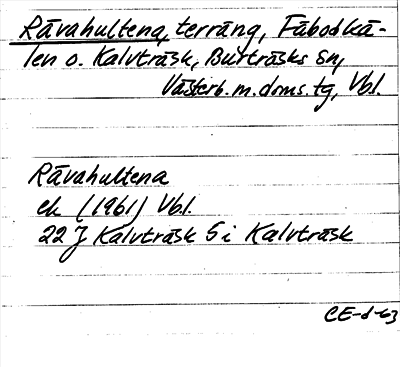 Rävahultena, terräng, Fäbodkä-
len o. Kalvträsk, Burträsks sn,
Västerb. m. doms. tg, Vbl.
Rävahultena
ek (1961) Vbl.
22 J Kalvträsk 5 i Kalvträsk
CE-d-63